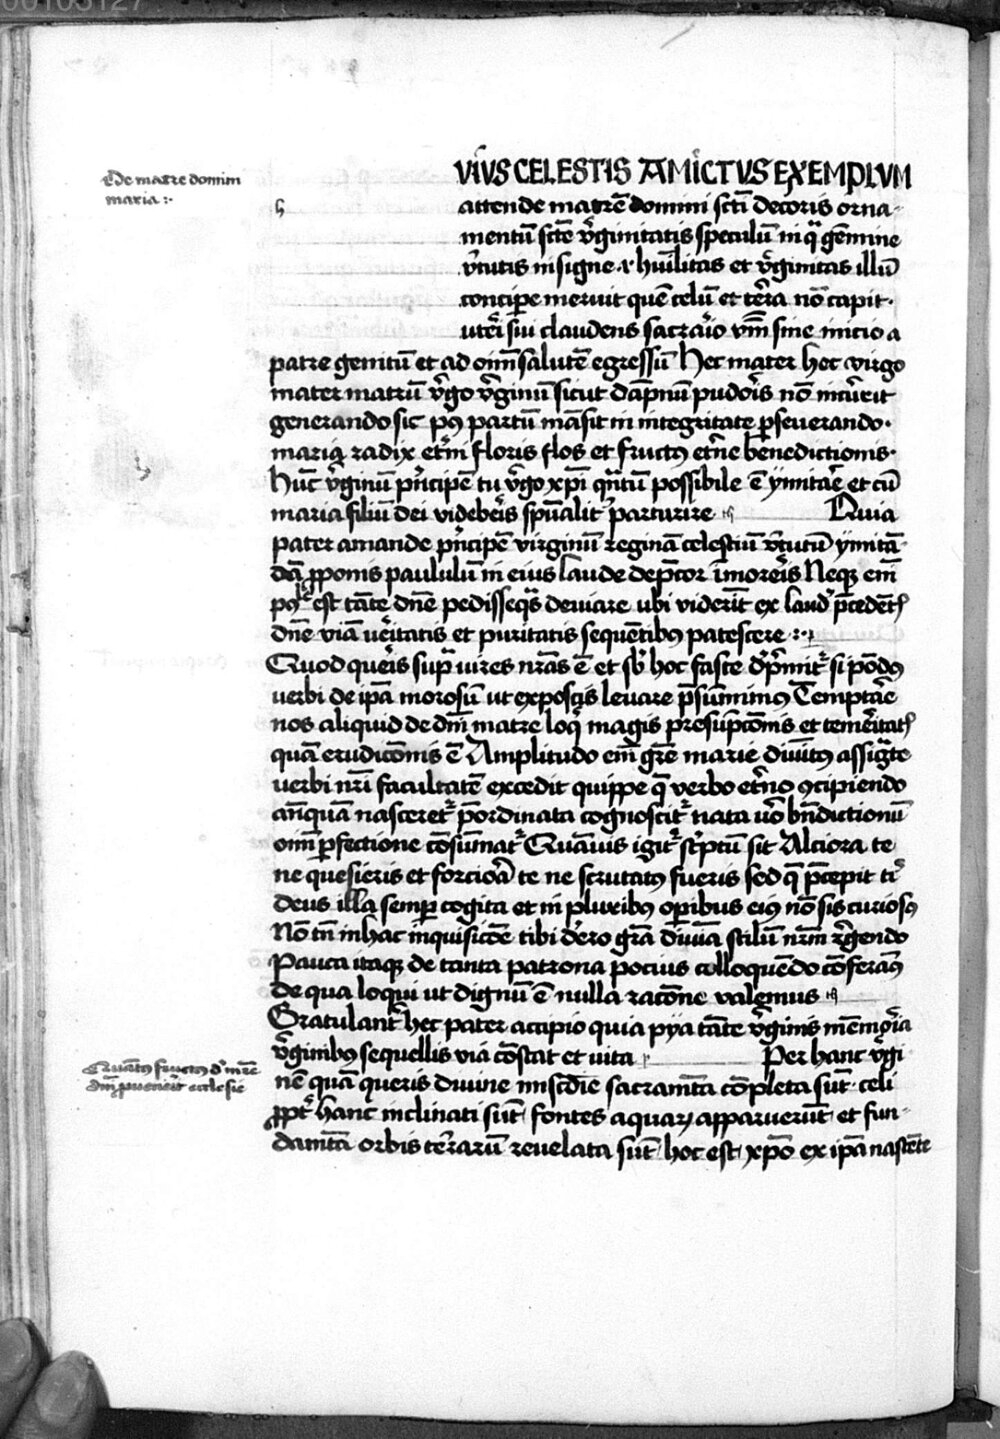 00103127
De matre domini
maria :-
VIVS CELESTIS AMICTVS EXEMPLVM
h
attende matrē domini sc̄ti decoris orna-
mentū sc̄te v̓ginitatis speculū in qᵃ gēmine
v̓tutis insigne · huīlitas et v̓ginitas illū
concipe meruit quē celū et tēra nō capit·
uteri sui claudens sacrario vnū sine inicio a
patre genitū et ad om̄ salutē egressū Hec mater hec virgo
mater matrū v̓go v̓ginū sicut dāpnū pudoris nō incurrit
generando sic pꝰ partū māsit in integritate pseuerando·
maria radix et̓ni floris flos et fructꝰ et̓ne benedictionis·
Hūc v̓ginū p̓ncipē tu v̓go xp̄i qn̄tū possibile ē ymitāe et cū
maria filiū dei videberis spūalit̓ parturire Quia
pater amande p̓ncipē virginū reginā celestiū v̓tutū ymitā-
dā ꝓponis paululū in eius laude dep̄cor īmoreris Neqꝫ em̄
pꝰ est tāte dn̄e pedisseqꝫ deuiare ubi viderīt ex laudꝭ p̄cedētꝭ
dn̄e viā ueritatis et puritatis sequētibꝰ patescere :·
Quod queris supᵃ uires nr̄as ē et sb̓ hoc fasce dp̓mit̓ si pōdꝰ
uerbi de ipā morosū ut exposcis leuare p̄sūmimꝰ Temptāe
nos aliquid de dn̄i matre loqͥ magis presūpcōnis et temeritatꝭ
quā erudicōnis ē Amplitudo em̄ gr̄e marie diuītꝰ assigᵃte
uerbi nr̄i facultatē excedit quippe q̄ verbo et̓no ↄcipiendo
an̄quā nasceret̓ p̄ordinata cognoscit̓ nata uō bn̄dictionū
om̄i pfectione cōsūmat̓ Quāuis igit̓ sc̓ptū sit Alciora te
ne quesieris et forciora te ne scrutatꝰ fueris sed q̄ p̄cepit ti
deus illa semp cogita et in pluribꝰ opibus eiꝰ nō sis curiosꝰ
Nō tn̄ in hac inquisicōe tibi dero gr̄a diuīa stilū nr̄m r̓gendo
Pauca itaqꝫ de tanta patrona pocius colloquēdo cōferāꝰ
de qua loqui ut dignū ē nulla racōne valemus
Gratulant̓ hec pater accipio quia pya tāte v̓ginis mēoria
v̓ginibꝰ sequellis via cōstat et uita Per hanc v̓gi
nē quā queris diuine miscdīe sacramēta cōpleta sūt celi
ꝓpt̓ hanc inclinati sūt fontes aquaꝝ apparuerūt et fun-
damēta orbis terrarū reuelata sūt hoc est xp̄o ex ipā nascēte
Quātꝰ fructꝰ d̓ mr̄e
dn̄i ꝓuenerit ecclesie